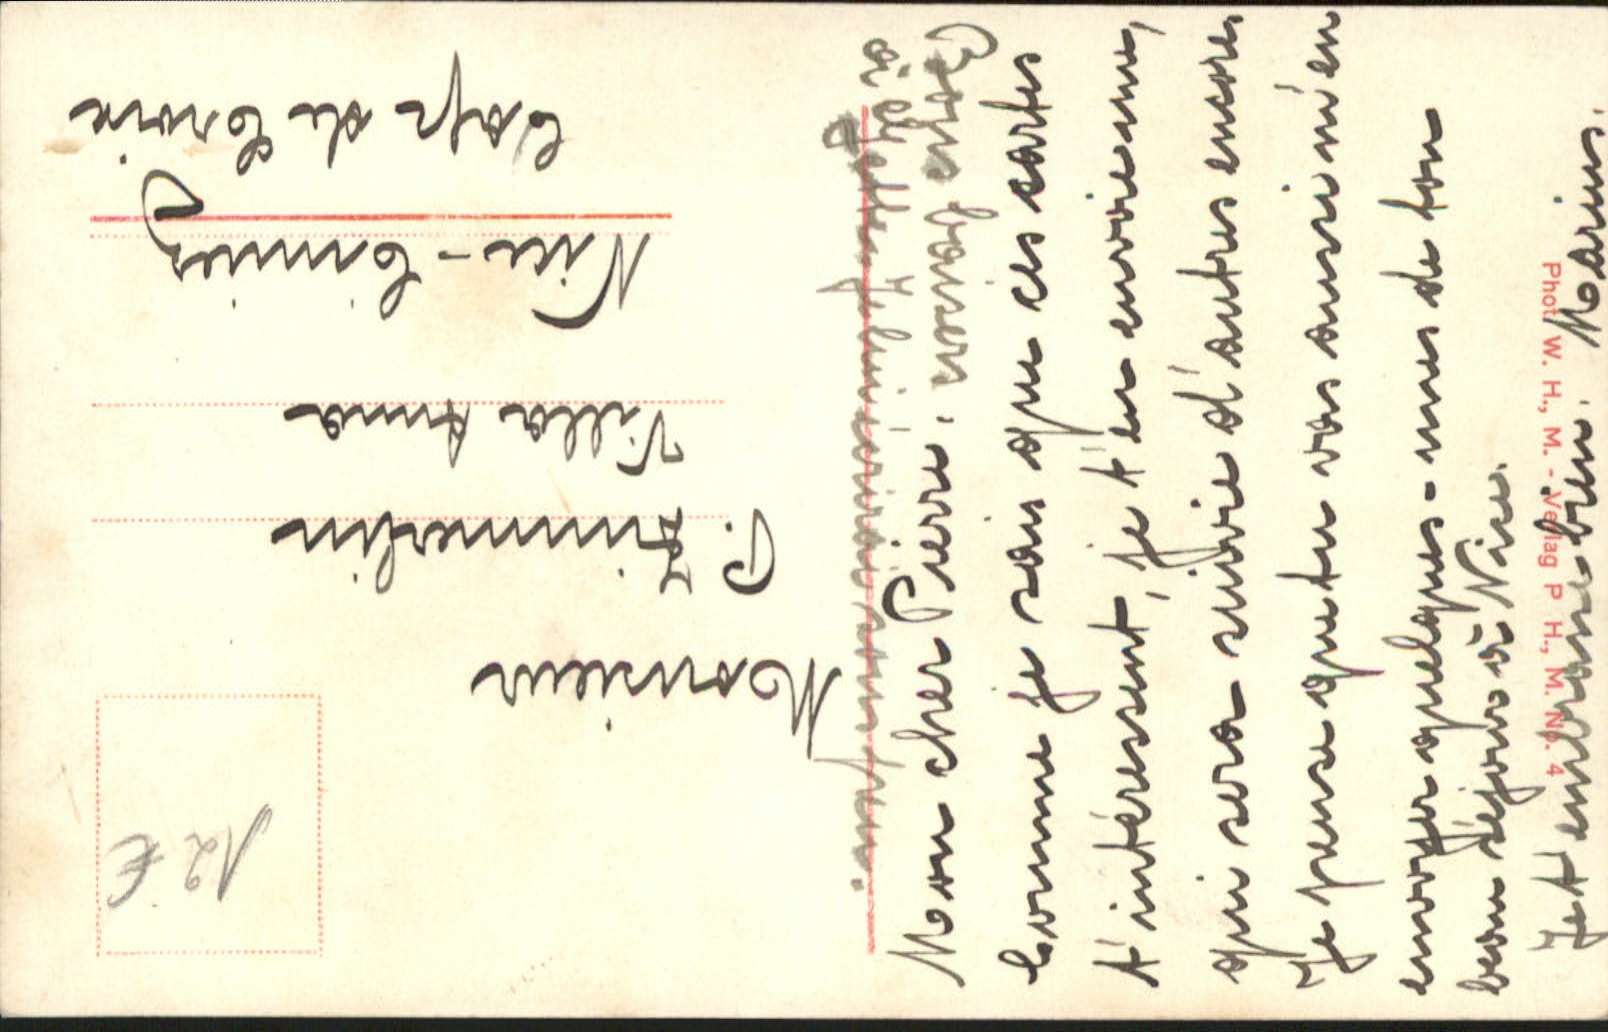 Mon cher Pierre,
Comme je sais que ces cartes
t'intéressent, je t'en envoie une,
qui sera suivie d'autres encore
Je pense que tu vas aussi m'en
envoyer quelques-unes de ton
beau séjour à Nice.
Je t'embrasse bien. Marius.
Bonne
à je lui écrirai sous peu.
Monsieur
P. Zimmerlin
Villa Anna
Nice-Cimiez
Cap de Croix
12 €
Phot. W. H., M. - Verlag P. H., M. No. 4